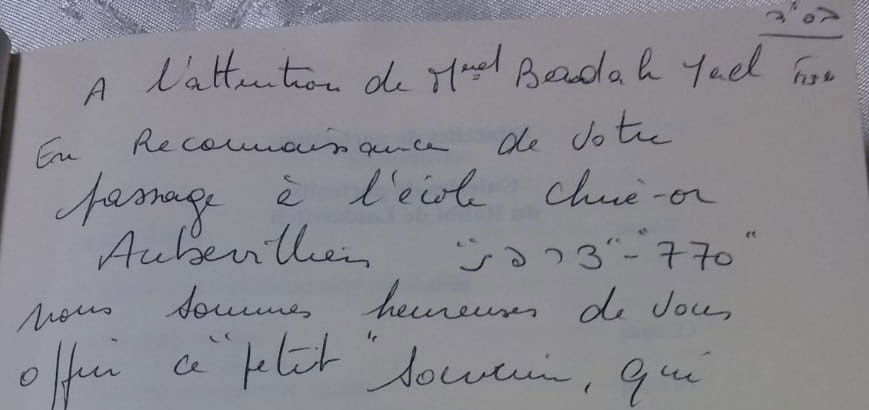 A l'attention de Yael
En Reconnaissance de votre
passage à l'école chné-or
Aubervilliers "770"
nous sommes heureuses de vous
offrir ce "petit" souvenir, qui